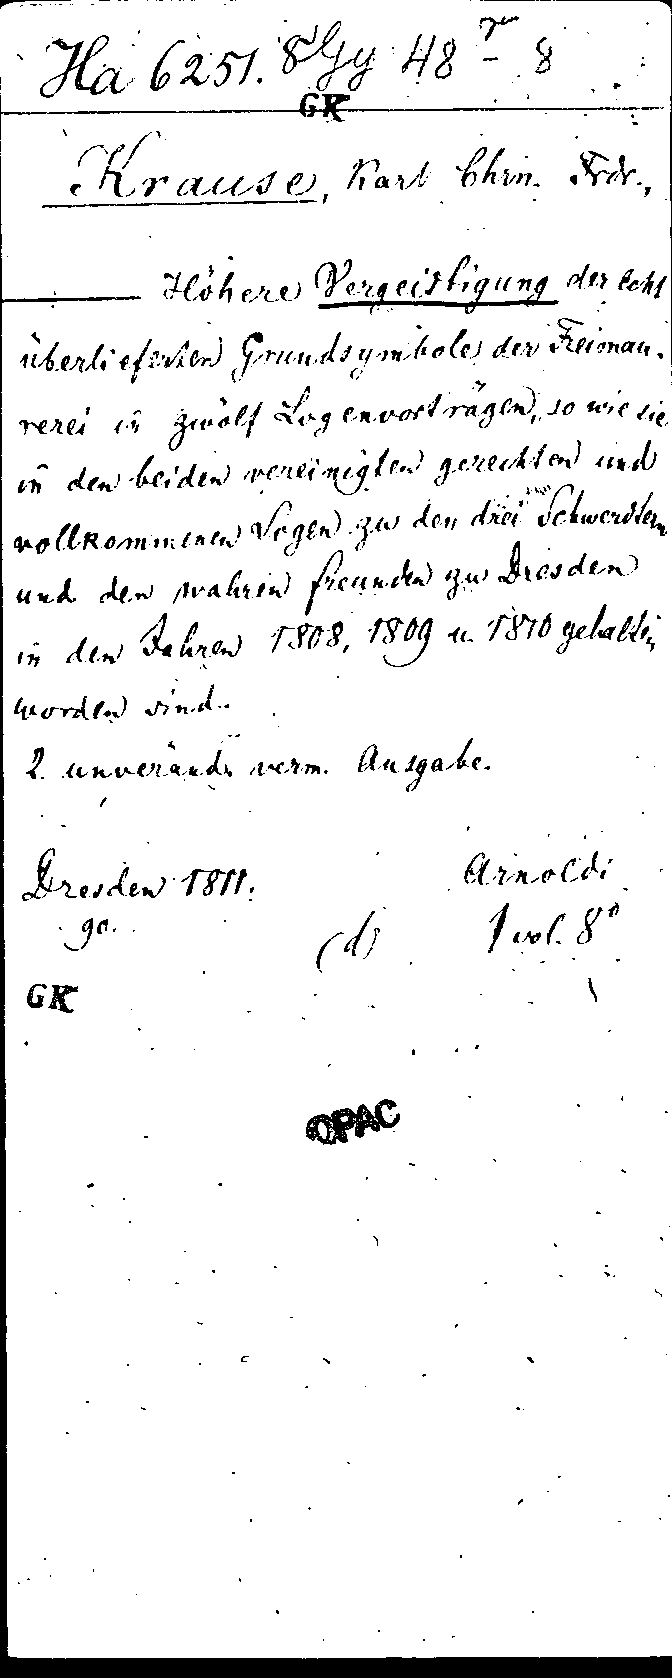 Ha 6251. 8° Gy 48 - 8
GK
Krause, Karl Chrn. Frdr.,
Höhere Vergeistigung der echt
überlieferten Grundsymbole der Freimau-
rerei in zwölf Logenvorträgen, so wie sie
in den beiden vereinigten gerechten und
vollkommenen Logen zu den drei Schwertern
und den wahren Freunden zu Dresden
in den Jahren 1808, 1809 u. 1810 gehalten
worden sind.
2. unveränd. verm. Ausgabe.
Dresden 1811. Arnoldi
(d) 1 vol. 8°
GK
OPAC